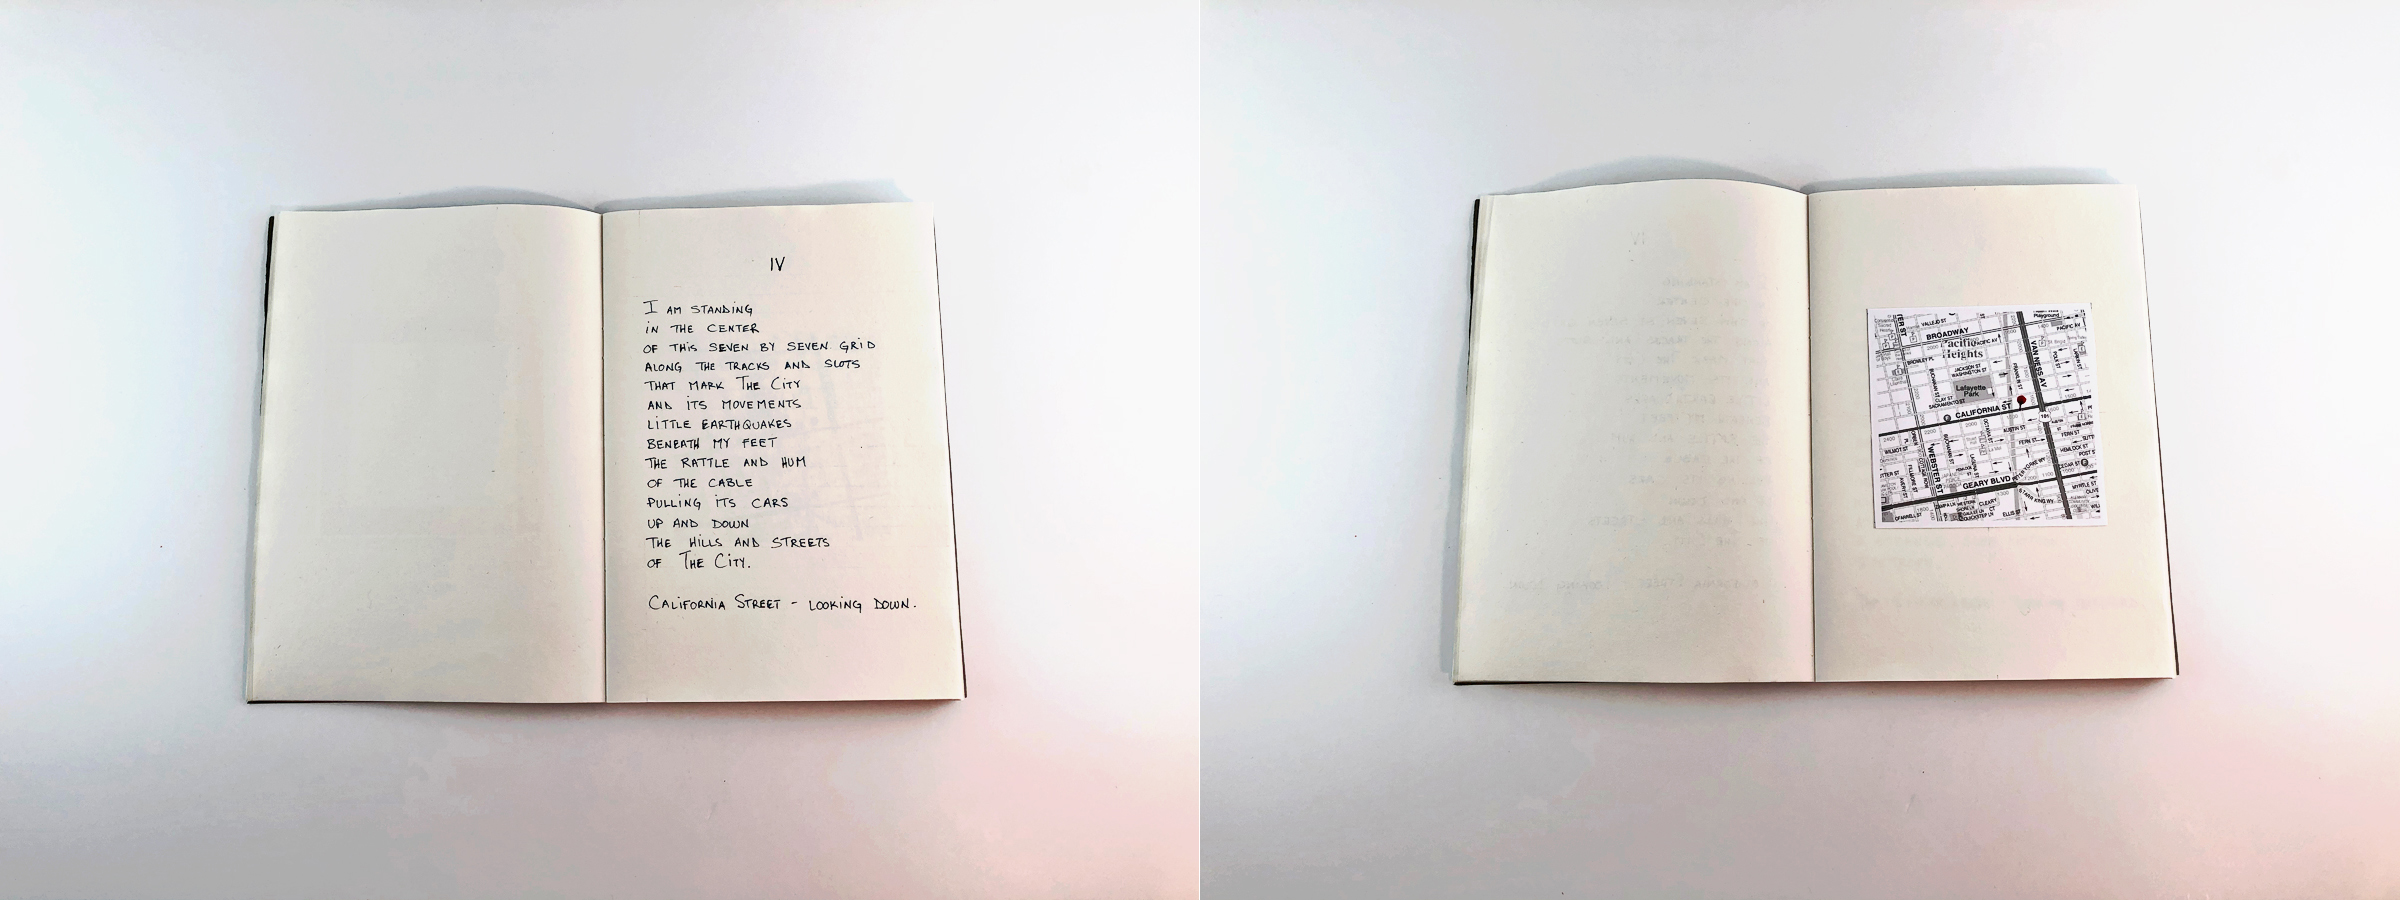 IV
I AM STANDING
IN THE CENTER
OF THIS SEVEN BY SEVEN GRID
ALONG THE TRACKS AND SLOTS
THAT MARK THE CITY
AND ITS MOVEMENTS
LITTLE EARTHQUAKES
BENEATH MY FEET
THE RATTLE AND HUM
OF THE CABLE
PULLING ITS CARS
UP AND DOWN
THE HILLS AND STREETS
OF THE CITY.
CALIFORNIA STREET - LOOKING DOWN.
VALLEJO ST
BROADWAY
Pacific
Heights
PACIFIC AV
JACKSON ST
WASHINGTON ST
Lafayette
Park
CLAY ST
SACRAMENTO ST
CALIFORNIA ST
VAN NESS AV
FRANKLIN ST
POLK ST
AUSTIN ST
FERN ST
FERN ST
HEMLOCK ST
POST S
CEDAR ST
WILMOT ST
WEBSTER ST
FILLMORE ST
GEARY BLVD
MYRTLE ST
OLIVE
STARR KING WY
CLEARY
CT
ELLIS
OFARRELL ST